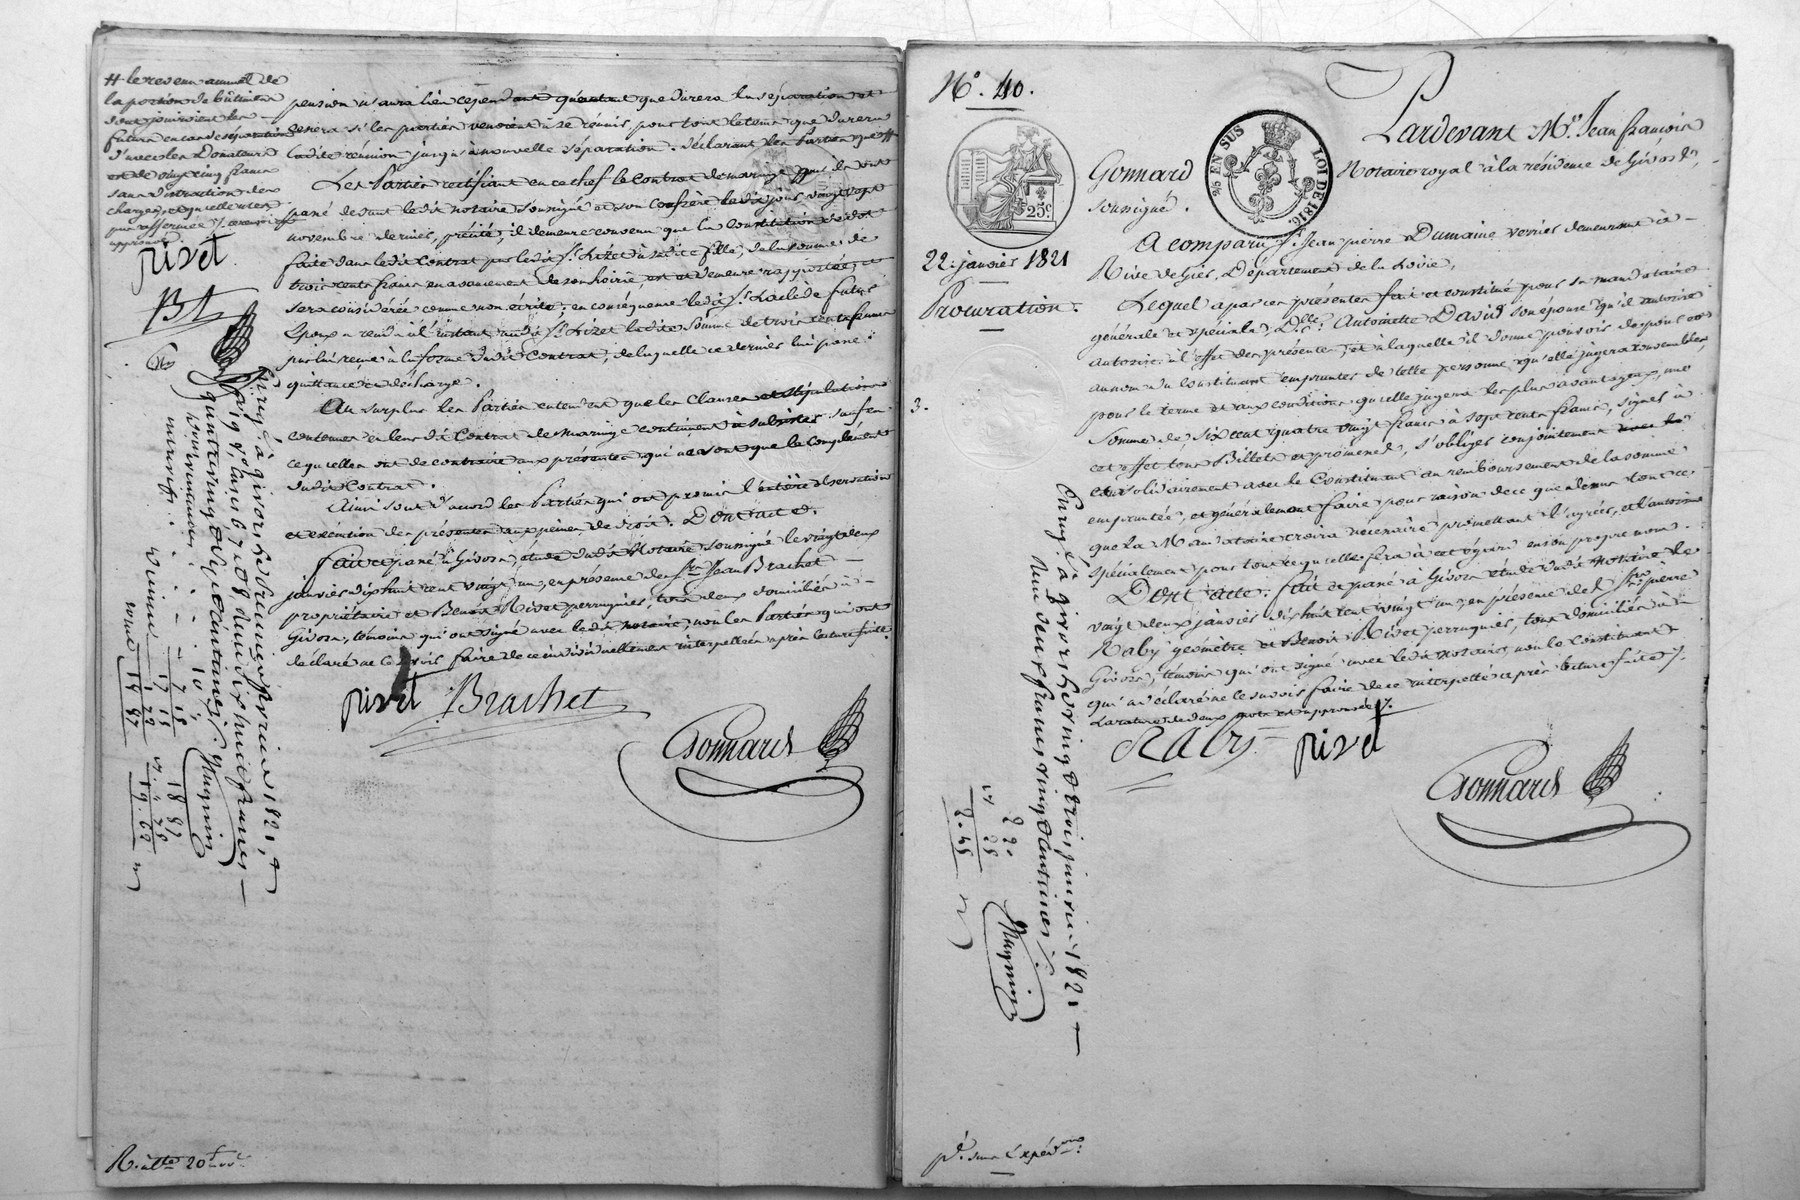 # le revenu annuel de
la portion de bâtimens
dont jouiroient les
futurs en cas de séparation
d'avec les Donateurs
est de vingt cinq francs
sans distraction des
charges, et qu'elle n'est
pas affermée ./. ce renvoi
approuvé
pivet
B.t
pension n'aura lieu cependant qu'autant que durera la séparation et
cessera si les parties venoient à se réunir, pour tout le tems que durera
ladite réunion jusqu'à nouvelle séparation. Déclarant les Parties que #
Les Parties rectifiant en ce chef le contrat de mariage
passé devant ledit notaire soussigné et son confrère le dix jours vingt sept
novembre dernier, précité, il demeure convenu que la constitution de dot
faite dans ledit Contrat par ledit S.r Lizet à sadite fille, de la somme de
trois cents francs en avancement de son hoirie, est et demeure rapportée, et
sera considérée comme non écrite; en conséquence ledit S.r Laclède futur
Epoux a rendu à l'instant audit S.r Lizet ladite somme de trois cents francs
par lui reçue à la forme dudit Contrat, de laquelle ce dernier lui passe
quittance et décharge.
Au surplus les Parties entendent que les Clauses et stipulations
contenues en leur dit Contrat de mariage continuent à subsister sauf en
ce qu'elles ont de contraire aux présentes qui ne sont que le complément
dudit Contrat.
Ainsi sont d'accord les Parties qui ont promis l'entière observation
et exécution des présentes aux peines de droit. Dont acte.
Fait et passé à Givors, étude dudit Notaire soussigné le vingt deux
janvier dix huit cent vingt un, en présence de Srs Jean Brachet
propriétaire et Benoit Rivet perruquier, tous deux domiciliés à
Givors, témoins qui ont signé avec ledit notaire, non les Parties qui ont
déclaré ne le savoir faire de ce individuellement interpellées après lecture faite.
pivet Brachet
Gonnard
Enreg.é à givors le deux février 1821, f.°
198, v.° cases 6, 7 et 8 reçu dix huit francs
quatre vingt sept centimes ./. Mugnin
18 87
1 . 87
19 . 62
R. 20
N.° 40.
25c
% EN SUS
LOI DE 1816.
22 janvier 1821
Procuration.
3.
Pardevant M.e Jean françois
Gonnard Notaire royal à la résidence de Givors,
soussigné.
A comparu S.r Jean pierre Dumaine verrier demeurant à
Rive de Gier, Département de la Loire,
Lequel a par ces présentes fait et constitué pour sa mandataire
générale et spéciale, D.lle Antoinette David son épouse qu'il autorise
autorise à l'effet des présentes, et à laquelle il donne pouvoir de pour et
au nom du Constituant emprunter de telle personne qu'elle jugera convenable,
pour le terme et aux conditions qu'elle jugera les plus avantageux, une
somme de six cent quatre vingt francs à sept cents francs, signer à
cet effet tous Billets et promesses, s'obliger conjointement
et solidairement avec le Constituant au remboursement de la somme
empruntée, et généralement faire pour raison de ce que dessus tout ce
que la Mandataire croira nécessaire promettant l'agréer, et l'autorise
spécialement pour tout ce qu'elle fera à cet égard en son propre nom.
Dont acte. fait et passé à Givors étude dudit notaire le
vingt deux janvier dix huit cent vingt un, en présence de Srs pierre
Raby géomètre et Benoit Rivet perruquier, tous domiciliés à
Givors, témoins qui ont signé avec ledit notaire, non le constituant
qui a déclaré ne le savoir faire de ce interpellé après lecture faite ./.
La rature de deux mots est approuvée ./.
Raby pivet
Gonnard
Enreg.é à givors le vingt trois janvier 1821
reçu deux francs vingt centimes ./.
2 20
" 25
2 . 45
Mugnin
p.r une Expéd.on